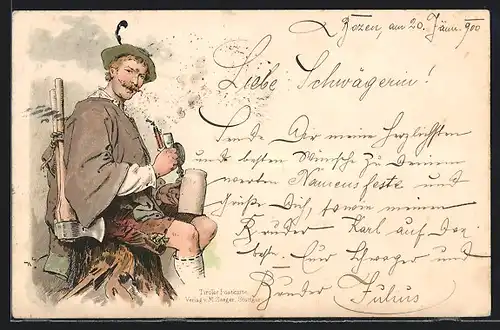 Bozen, am 20. Jänn. 900
Liebe Schwägerin!
Sende Dir meine herzlichsten
und besten Wünsche zu Deinem
werten Namensfeste und
Grüße Dich, sowie meinen
Bruder Karl auf das
beste. Euer Schwager und
Bruder Julius
Tiroler Postkarte
Verlag v. M. Seeger, Stuttgart